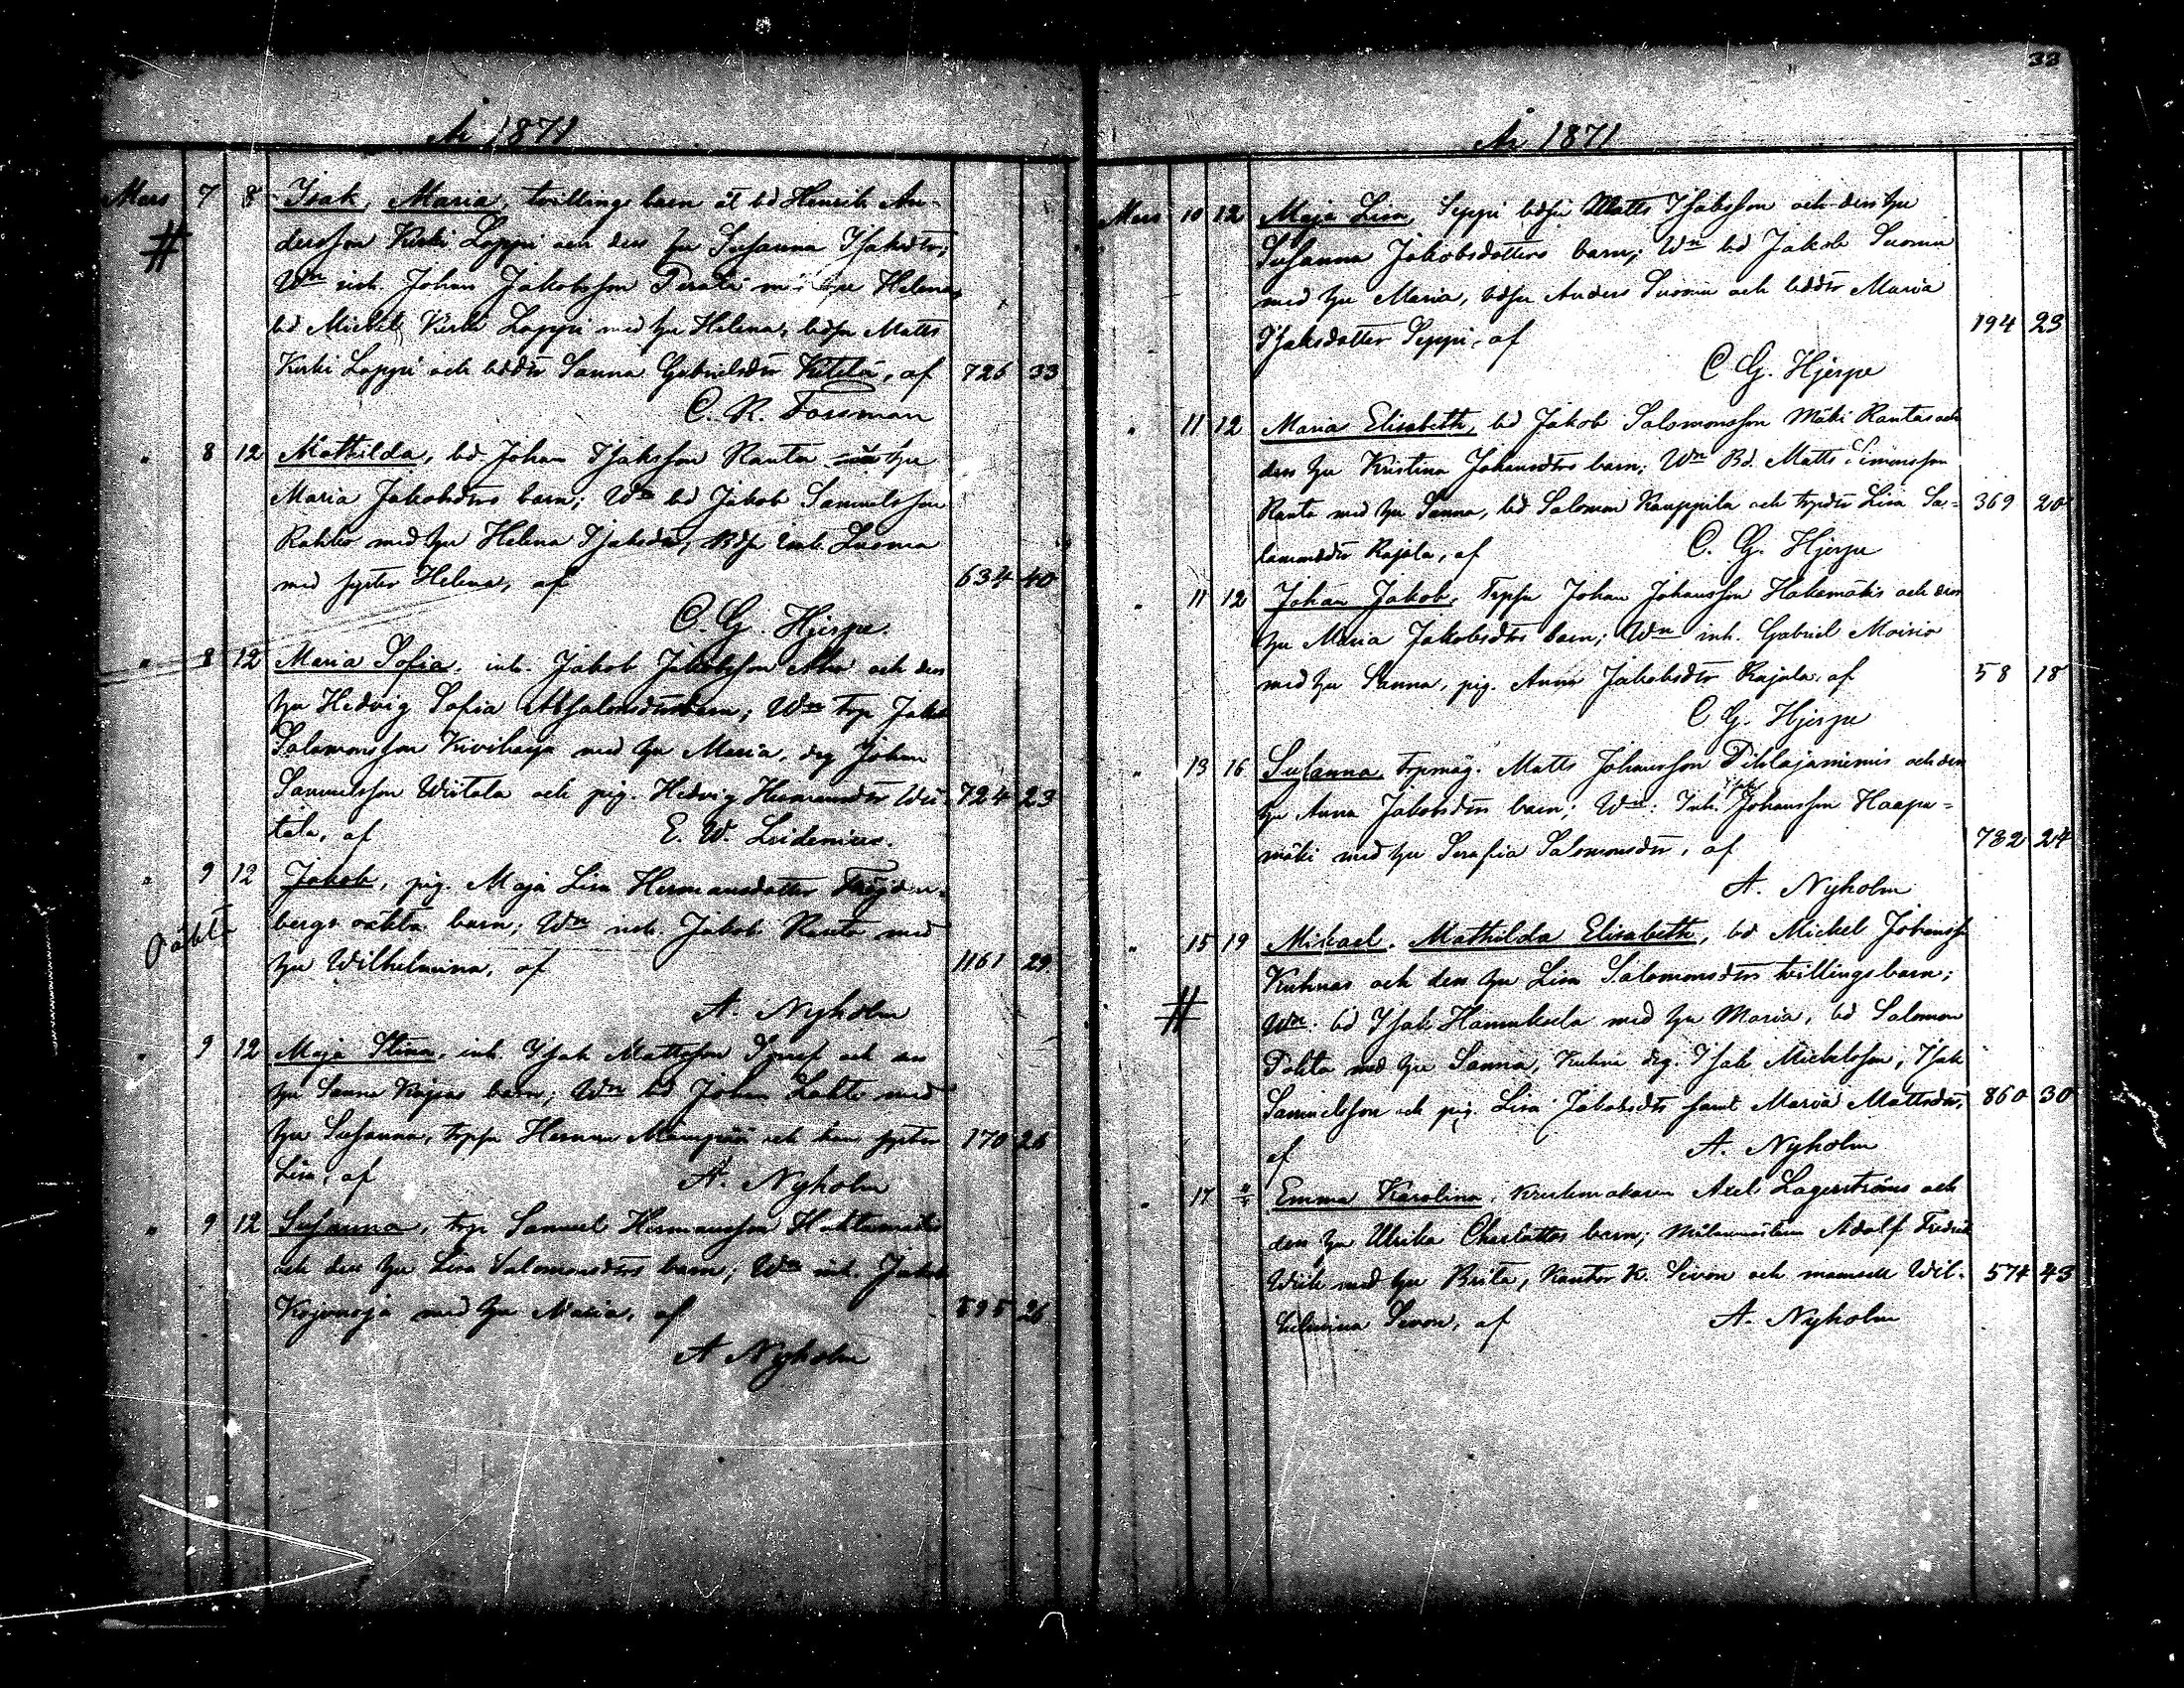 33
År 1871
Mars 7 8 Isak, Maria, tvillings barn åt bd Henrik An-
dersson Kirki Loppi och dess hu Susanna Isaksdtr;
Wn inh. Johan Jakobsson Perälä hu Helena,
bd Mickel Kirki Loppi med hu Helena, bdsn Matts
Kirki Loppi och bddtr Sanna Gabrielsdtr Kitilä, af 726 33
C. R. Forsman
" 8 12 Mathilda, bd Johan Isaksson Ranta hu
Maria Jakobsdtrs barn; Wn bd Jakob Samuelsson
Rahko med hu Helena Isaksdtr, Bdsn Luoma
med syster Helena, af 634 40
C. G. Hjerpe.
" 8 12 Maria Sofia, inh. Jakob Jakobsson Aho och dess
hu Hedvig Sofia Absalonsdtrs barn; Wn trp Jakob
Salomonsson Kiviharju med hu Maria, drg Johan
Samuelsson Wiitala och pig. Hedvig Hermansdtr Wii- 724 23
tala, af E. W. Lridenius.
" 9 12 Jakob, pig. Maja Lisa Hermansdotter Fröjden-
Oäkta bergs oäkta barn; Wn inh. Jakob Ranta med
hu Wilhelmina, af 1161 29
A. Nyholm
" 9 12 Maja Stina, inh. Isak Mattsson och dess
hu Sanna Kajsas barn; Wn bd Johan Lahti med
hu Susanna, trpsn Herman Mäenpää och hans syster 170 26
Lisa, af A. Nyholm
" 9 12 Susanna, trp Samuel Hermansson Huhtamäki
och dess hu Lisa Salomonsdtrs barn; Wn inh. Jakob
Kojonoja med hu Maria, af 595 26
A Nyholm
År 1871
Mars 10 12 Maja Lisa, Seppi bdsn Matts Isaksson och dess hu
Susanna Jakobsdotters barn; Wn bd Jakob Luoma
med hu Maria, bdsn Anders Luoma och bddtr Maria
Isaksdotter Seppi, af 194 23
C G. Hjerpe
" 11 12 Maria Elisabeth, bd Jakob Salomonsson Mäki Rantas och
dess hu Kristina Johansdtrs barn; Wn Bd. Matts Simonsson
Ranta med hu Sanna, bd Salomon Kauppila och trpdtr Lisa Sa- 369 20
lamondtr Rajala, af C. G. Hjerpe
" 11 12 Johan Jakob, Trpsn Johan Johansson Hakomäkis och dess
hu Maria Jakobsdtrs barn; Wn inh. Gabriel Moisio
med hu Sanna, pig. Anna Jakobsdtr Rajala, af 58 18
C G. Hjerpe
" 13 16 Susanna, trpmåg. Matts Johansson Pihlajaniemis och dess
hu Anna Jakobsdtrs barn; Wn: Inh. Johansson Haapa-
mäki med hu Serafia Salomonsdtr, af 782 24
A. Nyholm
" 15 19 Mikael, Mathilda Elisabeth, bd Mickel Johanss
Kuhnas och dess hu Lisa Salomonsdtrs tvillingsbarn;
Wn. bd Isak Hannuksela med hu Maria, bd Salomon
Dokta med hu Sanna, Kuhna drg. Isak Mickelsson, Isak
Samuelsson och pig. Lisa Jakobsdtr samt Maria Mattsdtr, 860 30
af A. Nyholm
" 17 Emma Karolina, krukmakaren Axel Lagerströms och
dess hu Ulrika Charlottas barn; Målaremästaren Adolf Fredrik
Wiik med hu Brita, Kantor K. Sivon och mamsell Wil- 574 43
helmina Sivon, af A. Nyholm